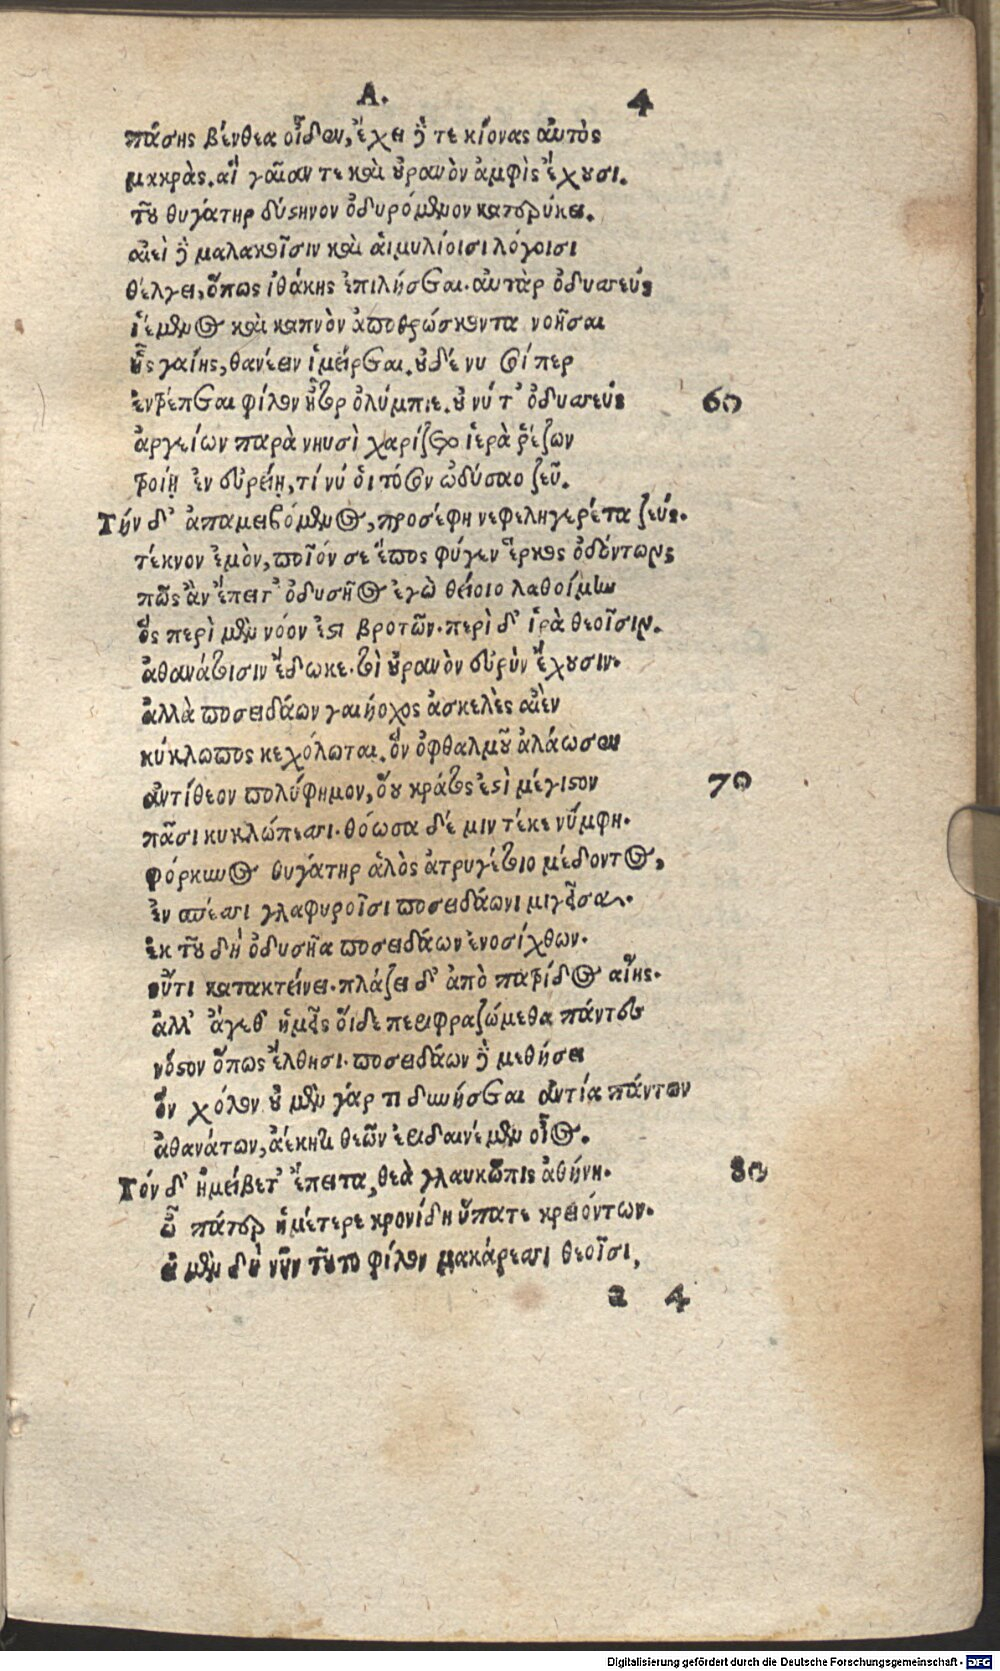 Α. 4
πάσης βένθεα οἶδεν, ἔχει δέ τε κίονας αὐτὸς
μακρὰς. αἵ γαῖαν τε καὶ οὐρανὸν ἀμφὶς ἔχουσι.
τοῦ θυγάτηρ δύστηνον ὀδυρόμενον κατερύκει.
αἰεὶ δὲ μαλακοῖσιν καὶ αἱμυλίοισι λόγοισι
θέλγει, ὅπως ἰθάκης ἐπιλήσεται. αὐτὰρ ὀδυσσεύς
ἱέμενος καὶ καπνὸν ἀποθρώσκοντα νοῆσαι
ἧς γαίης, θανέειν ἱμείρεται. οὐδέ νυ σοί περ
ἐντρέπεται φίλον ἦτορ ὀλύμπιε. οὔ νύ τ' ὀδυσσεύς 60
ἀργείων παρὰ νηυσὶ χαρίζετο ἱερὰ ῥέζων
τροίῃ ἐν εὐρείῃ, τί νύ οἱ τόσον ὠδύσαο ζεῦ.
Τήν δ' ἀπαμειβόμενος, προσέφη νεφεληγερέτα ζεύς.
τέκνον ἐμὸν, ποῖόν σε ἔπος φύγεν ἕρκος ὀδόντων;
πῶς ἂν ἔπειτ' ὀδυσῆος ἐγὼ θείοιο λαθοίμην
ὅς περὶ μὲν νόον ἐστὶ βροτῶν. περὶ δ' ἱρὰ θεοῖσιν.
ἀθανάτοισιν ἔδωκε. τοὶ οὐρανὸν εὐρὺν ἔχουσιν.
ἀλλὰ ποσειδάων γαιήοχος ἀσκελὲς αἰὲν
κύκλωπος κεχόλωται. ὅν ὀφθαλμοῦ ἀλάωσεν
ἀντίθεον πολύφημον, ὅου κράτος ἐστὶ μέγιστον 70
πᾶσι κυκλώπεσσι. θόωσα δέ μιν τέκε νύμφη.
φόρκυνος θυγάτηρ ἁλὸς ἀτρυγέτοιο μέδοντος,
ἐν σπέεσσι γλαφυροῖσι ποσειδάωνι μιγεῖσα.
ἐκ τοῦ δὴ ὀδυσῆα ποσειδάων ἐνοσίχθων.
οὔτι κατακτείνει. πλάζει δ' ἀπὸ πατρίδος αἴης.
ἀλλ' ἄγεθ' ἡμεῖς οἵδε περιφραζώμεθα πάντες
νόστον ὅπως ἔλθησι. ποσειδάων δὲ μεθήσει
ὅν χόλον οὐ μὲν γάρ τι δυνήσεται ἀντία πάντων
ἀθανάτων, ἀέκητι θεῶν ἐριδαινέμεν οἶος.
Τόν δ' ἠμείβετ' ἔπειτα, θεὰ γλαυκῶπις ἀθήνη. 80
ὦ πάτερ ἡμέτερε κρονίδη ὕπατε κρειόντων.
εἰ μὲν δὴ νῦν τοῦτο φίλον μακάρεσσι θεοῖσι,
a 4
Digitalisierung gefördert durch die Deutsche Forschungsgemeinschaft - DFG